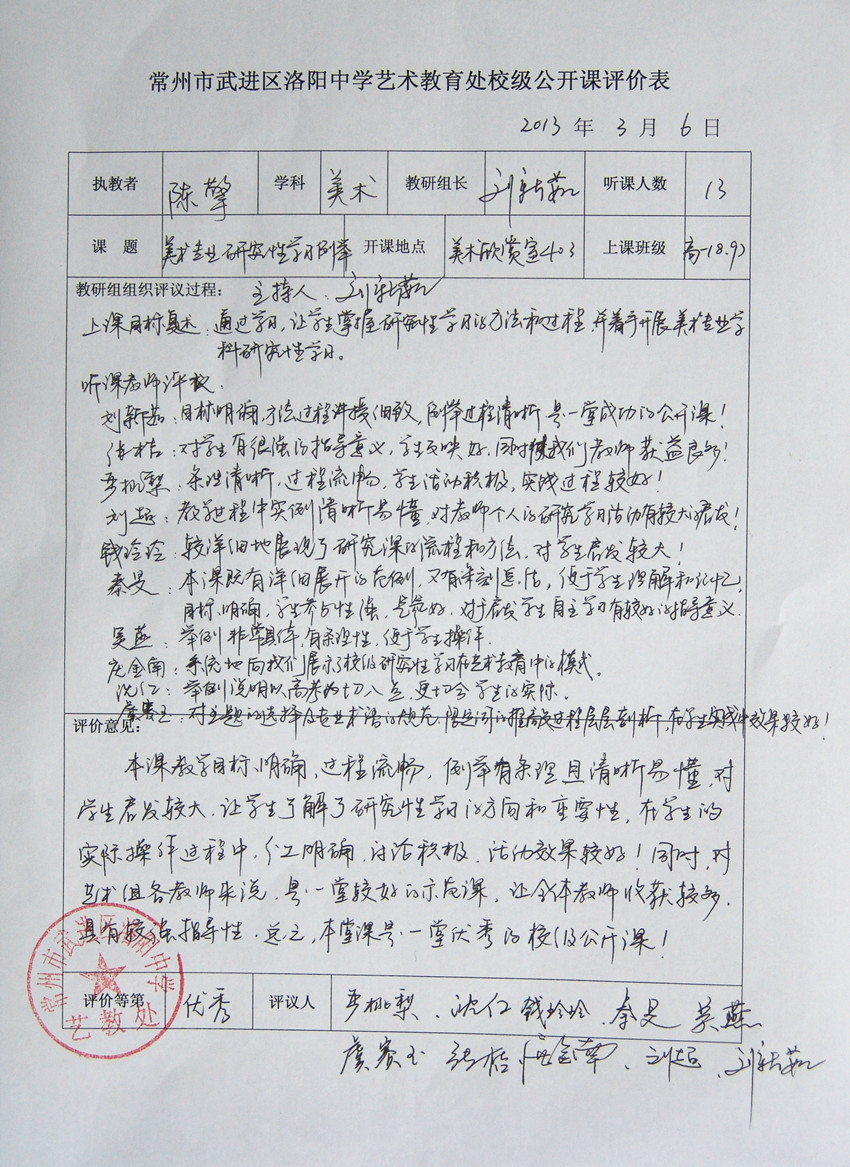 常州市武进区洛阳中学艺术教育处校级公开课评价表
2013 年 3 月 6 日
执教者 陈擎 学科 美术 教研组长 刘新茹 听课人数 13
课 题 美术专业研究性学习例举 开课地点 美术欣赏室403 上课班级 高一18.9)
教研组组织评议过程： 主持人：刘新茹
上课目标复述：通过学习，让学生掌握研究性学习的方法和过程，并着手开展美术专业学
科研究性学习。
听课教师评议：
刘新茹：目标明确，方法过程讲授细致，例举过程清晰，是一堂成功的公开课！
对学生有很强的指导意义，学生反映好，同时使我们教师获益良多！
条理清晰，过程流畅，学生活动积极，实践过程较好！
刘超：教学过程中实例清晰易懂，对教师个人的研究学习活动有较大的启发！
钱玲玲：较详细地展现了研究课的流程和方法，对学生启发较大！
秦旻：本课既有详细展开的范例，又有深刻总结，便于学生理解和记忆，
目标明确，学生参与性强，是最好，对于启发学生自主学习有较好的指导意义．
吴燕：举例非常具体，有条理性，便于学生操作．
系统地向我们展示了校级研究性学习在艺术教育中的模式。
沈仁：举例说明以高考为切入点，更切合学生的实际．
虞赛玉：对主题的选择及专业术语的规范，过程层层剖析，在学生实践中效果较好！
评价意见：
本课教学目标明确，过程流畅，例举有条理且清晰易懂，对
学生启发较大，让学生了解了研究性学习的方向和重要性，在学生的
实际操作过程中，分工明确，讨论积极，活动效果较好！同时，对
艺术组各教师来说，是一堂较好的示范课，让全体教师收获较多，
具有较强指导性．总之，本堂课是一堂优秀的校级公开课！
评价等第 优秀 评议人 沈仁 钱玲玲．秦旻 吴燕
虞赛玉 刘超、刘新茹
常州市武进区洛阳中学
艺教处